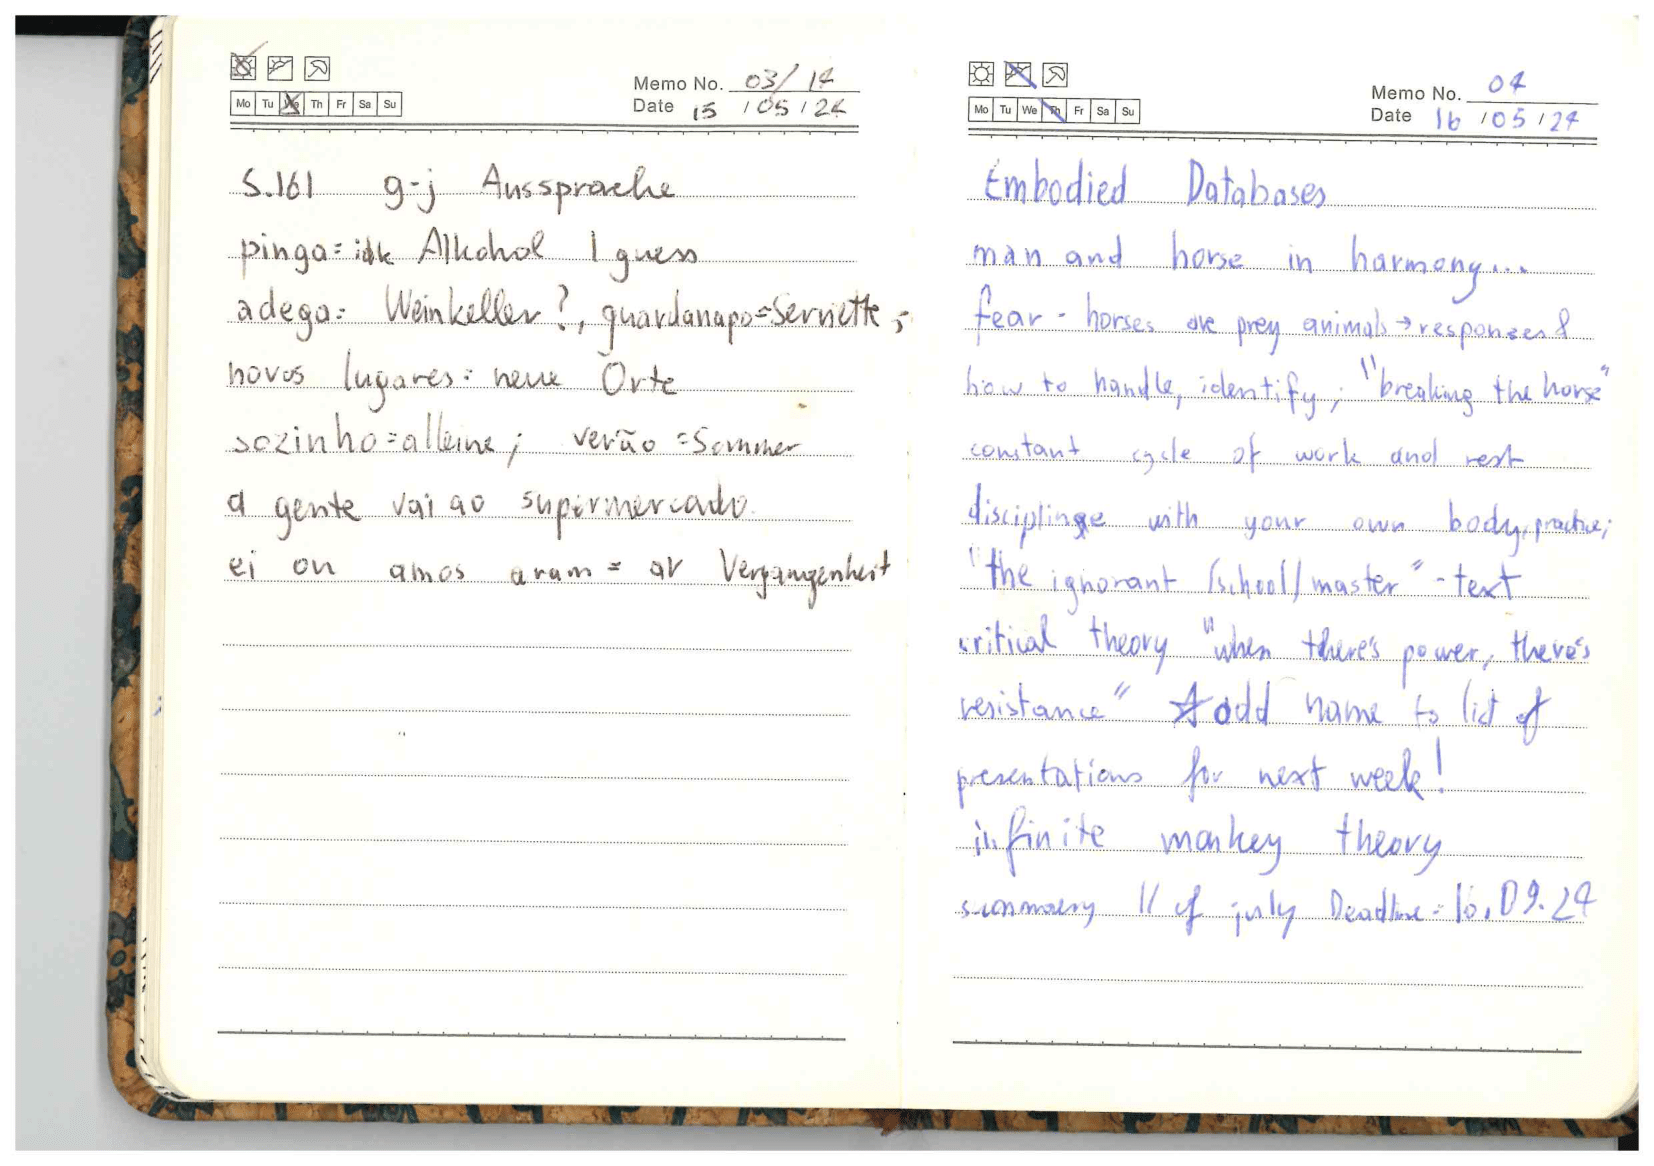 Mo Tu We Th Fr Sa Su
Memo No. 03/14
Date 15/05/24
S.161 g-j Aussprache
pinga = idk Alkohol I guess
adega = Weinkeller?, guardanapo = Serviette,
novos lugares = neue Orte
sozinho = alleine; verão = Sommer
a gente vai ao supermercado.
ei ou amos aram = ar Vergangenheit
Mo Tu We Th Fr Sa Su
Memo No. 04
Date 16/05/24
Embodied Databases
man and horse in harmony...
fear - horses are prey animals → responses &
how to handle, identify; "breaking the horse"
constant cycle of work and rest
discipline with your own body, practice;
"the ignorant /school/ master" - text
critical theory "when there's power, there's
resistance" ☆ add name to list of
presentations for next week!
infinite monkey theory
summary 11 of july Deadline = 16.09.24